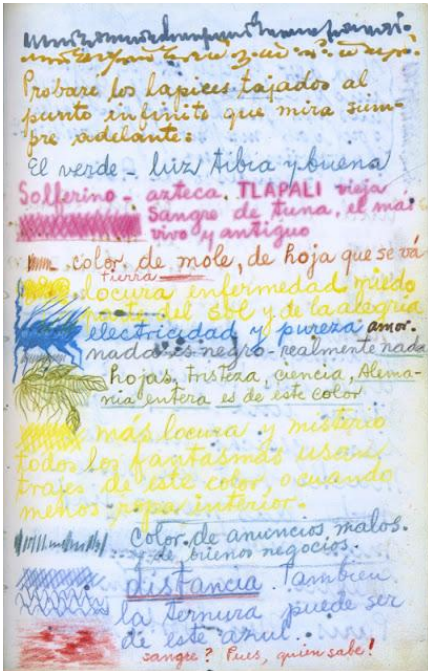 Probaré los lapices tajados al
punto infinito que mira siem-
pre adelante:
El verde - luz tibia y buena
Solferino - azteca. TLAPALI vieja
Sangre de tuna, el más
vivo y antiguo
color de mole, de hoja que se vá
tierra
locura enfermedad miedo
parte del sol y de la alegria
electricidad y pureza amor.
nada es negro - realmente nada
hojas, tristeza, ciencia, Alema-
nia entera es de este color
más locura y misterio
todos los fantasmas usan
trajes de este color, o cuando
menos ropa interior.
color de anuncios malos.
de buenos negocios.
distancia. Tambien
la ternura puede ser
de este azul..
sangre? Pues, quien sabe!